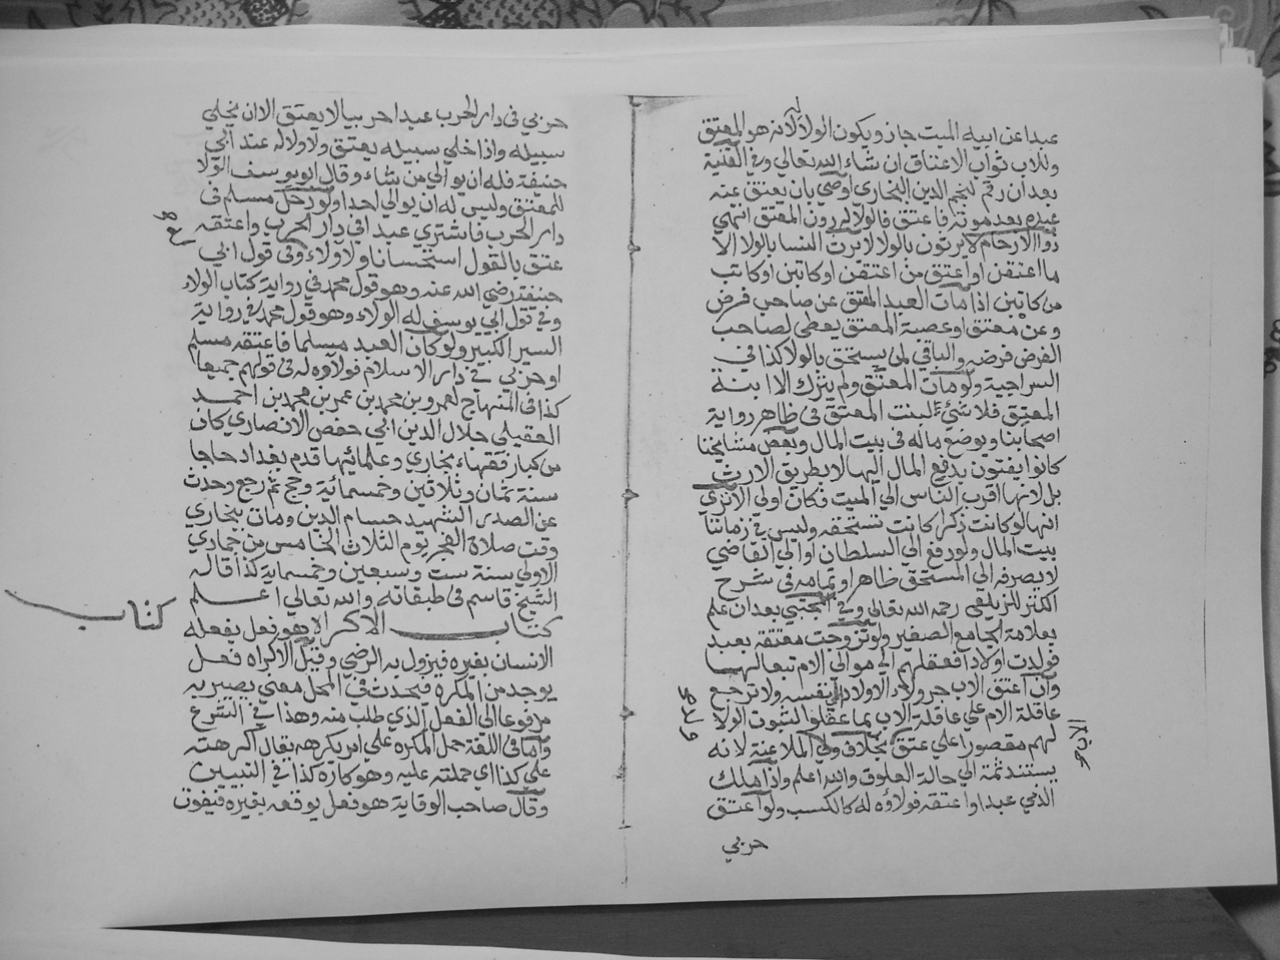 عبدا عن ابيه الميت جاز ويكون الولاء له لانه هو المعتق
وللاب ثواب الاعتاق ان شاء الله تعالي وفي القنية
بعد ان رقم لنجم الدين البخاري اوصي بان يعتق عنه
عبده بعد موته فاعتق فالولا له دون المعتق انتهي
ذوا الارحام لا يرثون بالولا لا يرث النسا بالولا الا
ما اعتقن او اعتق من اعتقن او كاتبن او كاتب
من كاتبن اذا مات العبد المعتق عن صاحب فرض
وعن معتق او عصبة المعتق يعطي لصاحب
الفرض فرضه والباقي لمن يستحق بالولا كذا في
السراجية ولو مات المعتق ولم يترك الا ابنة
المعتق فلا شيء لبنت المعتق في ظاهر رواية
اصحابنا ويوضع ماله في بيت المال وبعض مشايخنا
كانوا يفتون بدفع المال اليها لا بطريق الارث
بل لانها اقرب الناس الي الميت فكان اولي الا تري
انها لو كانت ذكرا كانت تستحقه وليس في زماننا
بيت المال ولو رفع الي السلطان او الي القاضي
لا يصرفه الي المستحق ظاهرا وتمامه في شرح
الكنز للزيلعي رحمه الله تعالي وفي المجتبي بعد ان علم
بعلامة الجامع الصغير ولو تزوجت معتقة بعبد
فولدت اولادا فعقلهم الي موالي الام تبعا لهما
وان اعتق الاب جر ولاء الاولاد الي نفسه ولا ترجع
عاقلة الام علي عاقلة الاب بما عقلوا لثبوت الولا
لهم مقصورا علي عتق بخلاف ولي الملاعنة لانه
يستند ثمة الي حالة العلوق والله اعلم واذا ملك
الذمي عبدا واعتقه فولاؤه له كالكسب ولو اعتق
حربي
حربي في دار الحرب عبدا حربيا لا يعتق الا ان يخلي
سبيله واذا خلي سبيله يعتق ولا ولا له عند ابي
حنيفة فله ان يوالي من شاء وقال ابو يوسف الولا
للمعتق وليس له ان يوالي احدا ولو رجل مسلم في
دار الحرب فاشتري عبدا في دار الحرب واعتقه
عتق بالقول استحسانا ولا ولاء وفي قول ابي
حنيفة رضي الله عنه وهو قول محمد في رواية كتاب الولاء
وفي قول ابي يوسف له الولاء وهو قول محمد في رواية
السير الكبير ولو كان العبد مسلما فاعتقه مسلم
او حربي في دار الاسلام فولاؤه له في قولهم جميعا
كذا في المنهاج لعمرو بن محمد بن عمر بن محمد بن احمد
العقيلي جلال الدين ابي حفص الانصاري كان
من كبار فقهاء بخاري وعلمائها قدم بغداد حاجا
سنة ثمان وثلاثين وخمسمائة وحج ثم رجع وحدث
عن الصدر الشهيد حسام الدين ومات ببخاري
وقت صلاة الفجر يوم الثلاث الخامس من جمادي
الاولي سنة ست وسبعين وخمسماية كذا قاله
الشيخ قاسم في طبقاته والله تعالي اعلم
كتاب
كتاب الاكراه هو فعل يفعله
الانسان بغيره فيزول به الرضي وقيل الاكراه فعل
يوجد من المكره فيحدث في المحل معني يصير به
مدفوعا الي الفعل الذي طلب منه وهذا في الشرع
واما في اللغة حمل المكره علي امر يكرهه يقال اكرهته
علي كذا اي حملته عليه وهو كاره كذا في التبيين
وقال صاحب الوقاية هو فعل يوقعه بغيره فيفوت